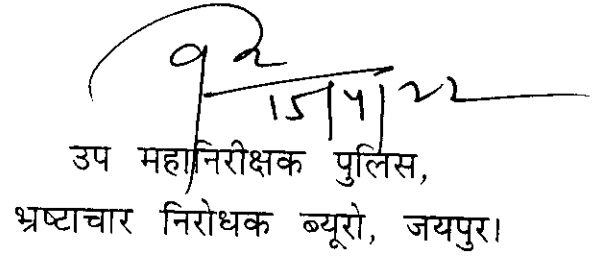 15/4/22
उप महानिरीक्षक पुलिस,
भ्रष्टाचार निरोधक ब्यूरो, जयपुर।